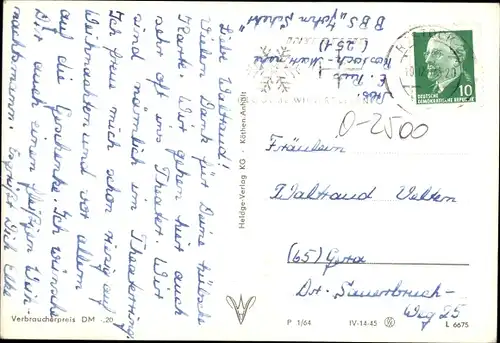 Liebe Waltraud!
Vielen Dank für Deine hübsche
Karte. Wir gehen hier auch
sehr oft ins Theater. Wir
sind nämlich im Theaterring.
Ich freue mich schon riesig auf
Weihnachten und vor allem
auf die Geschenke. Ich wünsche
Dir auch einen fleißigen Weih-
nachtsmann. Es grüßt Dich Elke
Verbraucherpreis DM -.20
Heldge-Verlag KG · Köthen-Anhalt
P 1/64 IV-14-45 L 6675
Abs.
E.
(251)
BBS „John Schehr"
DEUTSCHE
DEMOKRATISCHE REPUBLIK
10
0-2500
Fräulein
Waltraud Velten
(65) Gera
Dr. Sauerbruch-
Weg 25